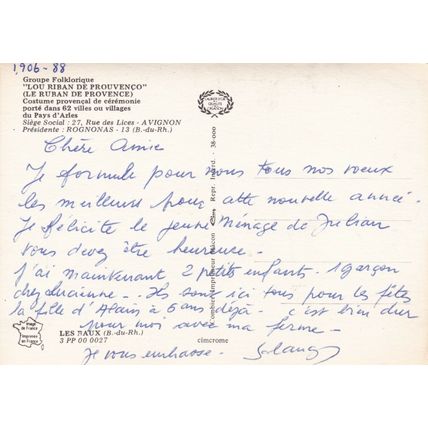 1906-88
Groupe Folklorique
"LOU RIBAN DE PROUVENÇO"
(LE RUBAN DE PROVENCE)
Costume provençal de cérémonie
porté dans 62 villes ou villages
du Pays d'Arles
Siège Social : 27, Rue des Lices - AVIGNON
Présidente : ROGNONAS - 13 (B.-du-Rh.)
Chère Amie
Je formule pour vous tous nos voeux
les meilleurs pour cette nouvelle année.
Je félicite le jeune Ménage de Julian
vous devez être heureuse.
J'ai maintenant 2 petits enfants. 1 garçon
chez Lucienne - Ils sont ici tous pour les fêtes
la fille d'Alain à 6 ans déjà. c'est bien dur
pour moi avec ma ferme -
Je vous embrasse. Solange
LES BAUX (B.-du-Rh.)
3 PP 00 0027
cimcrome
36-000
Repr. interd.
Image
de France
Imprimée
en France